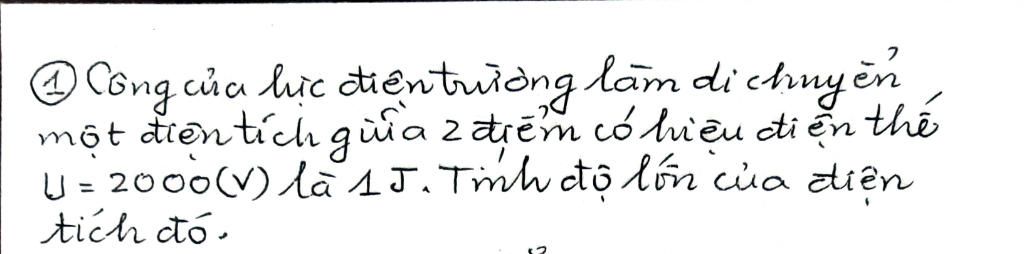 ① Công của lực điện trường làm di chuyển
một điện tích giữa 2 điểm có hiệu điện thế
U = 2000(V) là 1J. Tính độ lớn của điện
tích đó.